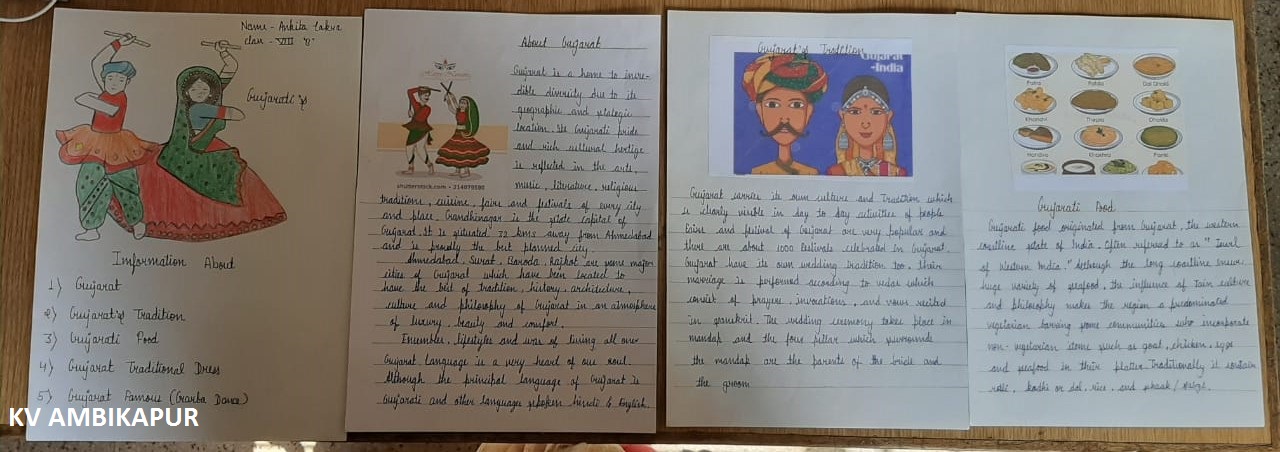 Name - Ankita Lakra
class - VIII 'B'
Gujarati
Information About
1) Gujarat
2) Gujarat's Tradition
3) Gujarati Food
4) Gujarat Traditional Dress
5) Gujarat Famous (Garba Dance)
KV AMBIKAPUR
About Gujarat
shutterstock.com • 214979590
Gujarat is a home to incre-
dible diversity due to its
geographic and
location. Its Gujarati pride
and rich cultural
is reflected in the arts,
music, literature, religious
traditions, cuisine, fairs and festivals of every city
and place. Gandhinagar is the state capital of
Gujarat. It is situated 32 kms away from Ahmedabad
and is proudly the best planned city.
Ahmedabad, Surat, Baroda, Rajkot are some major
cities of Gujarat which have been located to
have the best of tradition, history, architecture,
culture and philosophy of Gujarat in an atmosphere
of luxury, beauty and comfort.
lifestyles and was of living all over
Gujarat language is a very heart of our soul.
Although the principal language of Gujarat is
Gujarati and other language spoken hindi & English.
Gujarat's Tradition
Gujarat
-India
Gujarat carries its own culture and Tradition which
is clearly visible in day to day activities of people
Fairs and festival of Gujarat are very popular and
there are about 1000 festivals celebrated in Gujarat.
Gujarat have its own wedding tradition too. Their
marriage is performed according to vedas which
consist of prayers, invocations, and vows recited
in sanskrit. The wedding ceremony takes place in
mandap and the four pillar which surrounds
the mandap are the parents of the bride and
the groom
Patra
Fafda
Dal Dhokli
Khandvi
Thepla
Dhokla
Handvo
Khakhra
Panki
Gujarati Food
Gujarati food originated from Gujarat, the western
coastline state of India. Often referred to as "Jewel
of Western India." Although the long coastline
huge variety of seafood, the influence of Jain culture
and philosophy makes the region a predominated
vegetarian barring some communities who incorporate
non-vegetarian items such as goat, chicken,
and seafood in their platter. Traditionally it contain
roti, kadhi or dal, rice, and shaak /